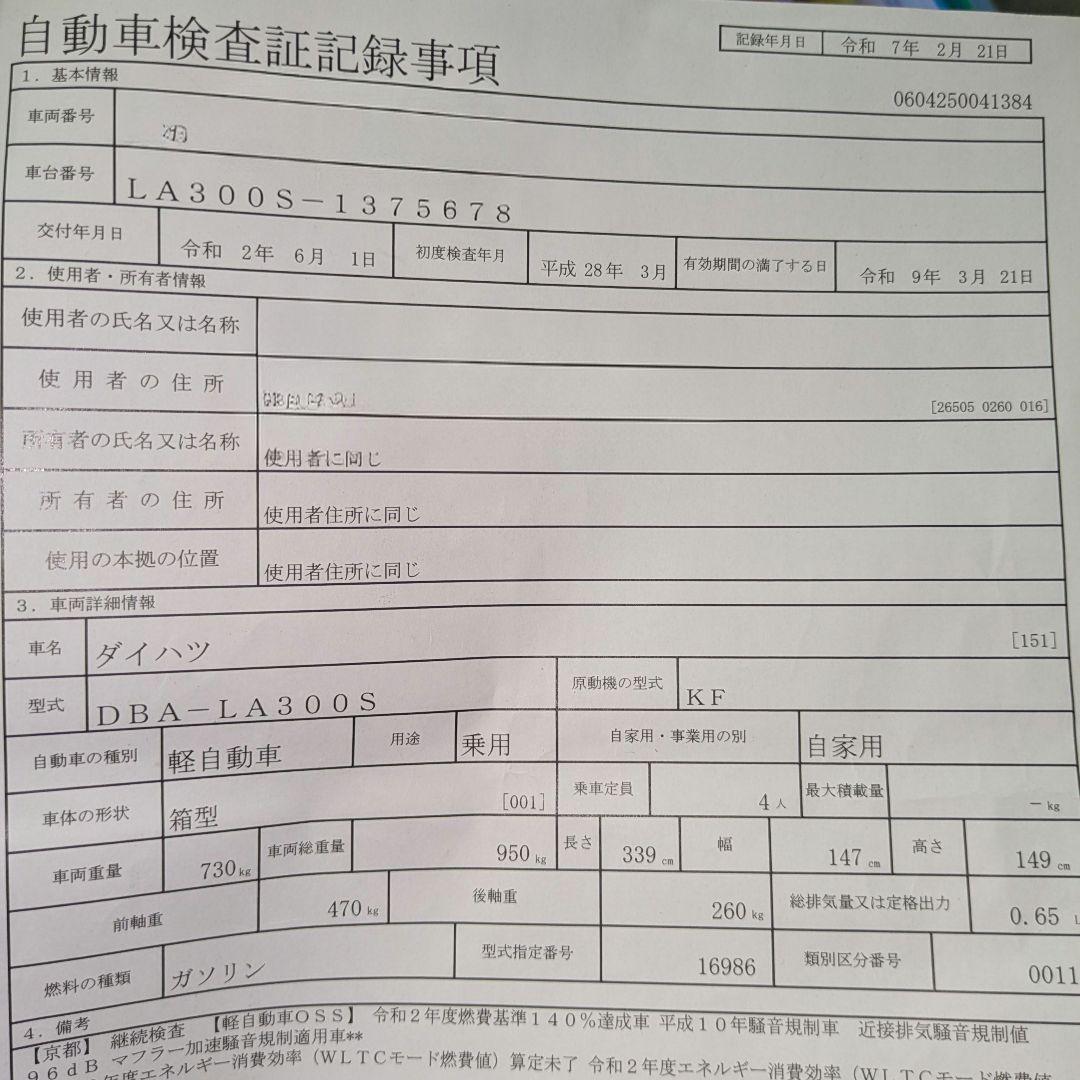 自動車検査証記録事項
記録年月日 令和 7年 2月 21日
1. 基本情報
0604250041384
車両番号
車台番号 LA300S-1375678
交付年月日 令和 2年 6月 1日 初度検査年月 平成 28年 3月 有効期間の満了する日 令和 9年 3月 21日
2. 使用者・所有者情報
使用者の氏名又は名称
使用者の住所 [26505 0260 016]
所有者の氏名又は名称 使用者に同じ
所有者の住所 使用者住所に同じ
使用の本拠の位置 使用者住所に同じ
3. 車両詳細情報
車名 ダイハツ [151]
型式 DBA-LA300S 原動機の型式 KF
自動車の種別 軽自動車 用途 乗用 自家用・事業用の別 自家用
車体の形状 箱型 [001] 乗車定員 4人 最大積載量 -kg
車両重量 730kg 車両総重量 950kg 長さ 339cm 幅 147cm 高さ 149cm
前軸重 470kg 後軸重 260kg 総排気量又は定格出力 0.65 L
燃料の種類 ガソリン 型式指定番号 16986 類別区分番号 0011
4. 備考
【京都】 継続検査 【軽自動車OSS】 令和2年度燃費基準140%達成車 平成10年騒音規制車 近接排気騒音規制値
96dB マフラー加速騒音規制適用車**
年度エネルギー消費効率(WLTCモード燃費値)算定未了 令和2年度エネルギー消費効率(WLTCモード燃費値